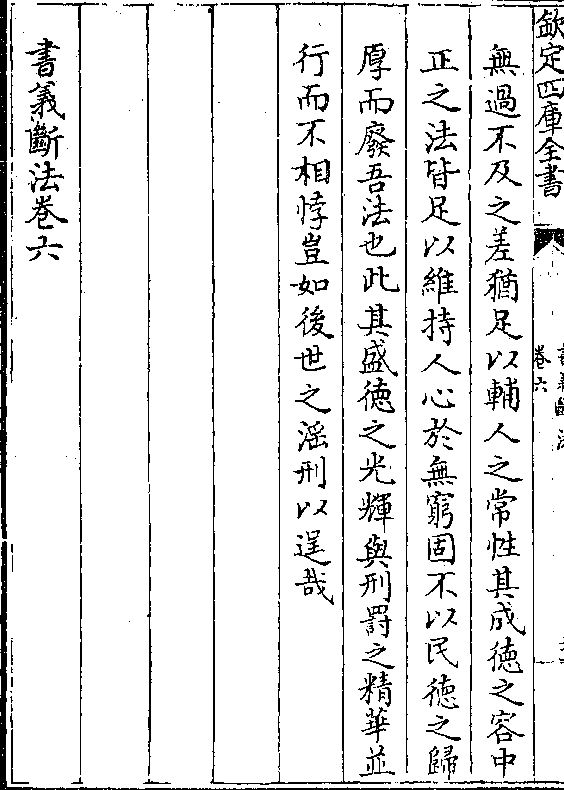 欽定四庫全書
書義斷法
卷六
無過不及之差猶足以輔人之常性其成德之容中
正之法皆足以維持人心於無窮固不以民德之歸
厚而廢吾法也此其盛德之光輝與刑罰之精華並
行而不相悖豈如後世之滛刑以逞哉
書義斷法卷六